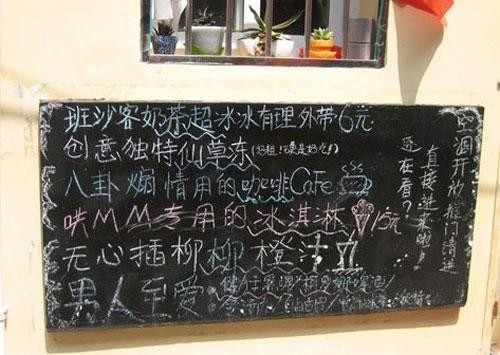 班沙客奶茶超冰冰有理外带6元
创意独特仙草冻(好粗!但是好吃!)
八卦煽情用的咖啡CaFe
哄MM专用的冰淇淋15元
无心插柳柳橙汁
男人至爱
空调开放推门请进
直接进来啦!
还在看?